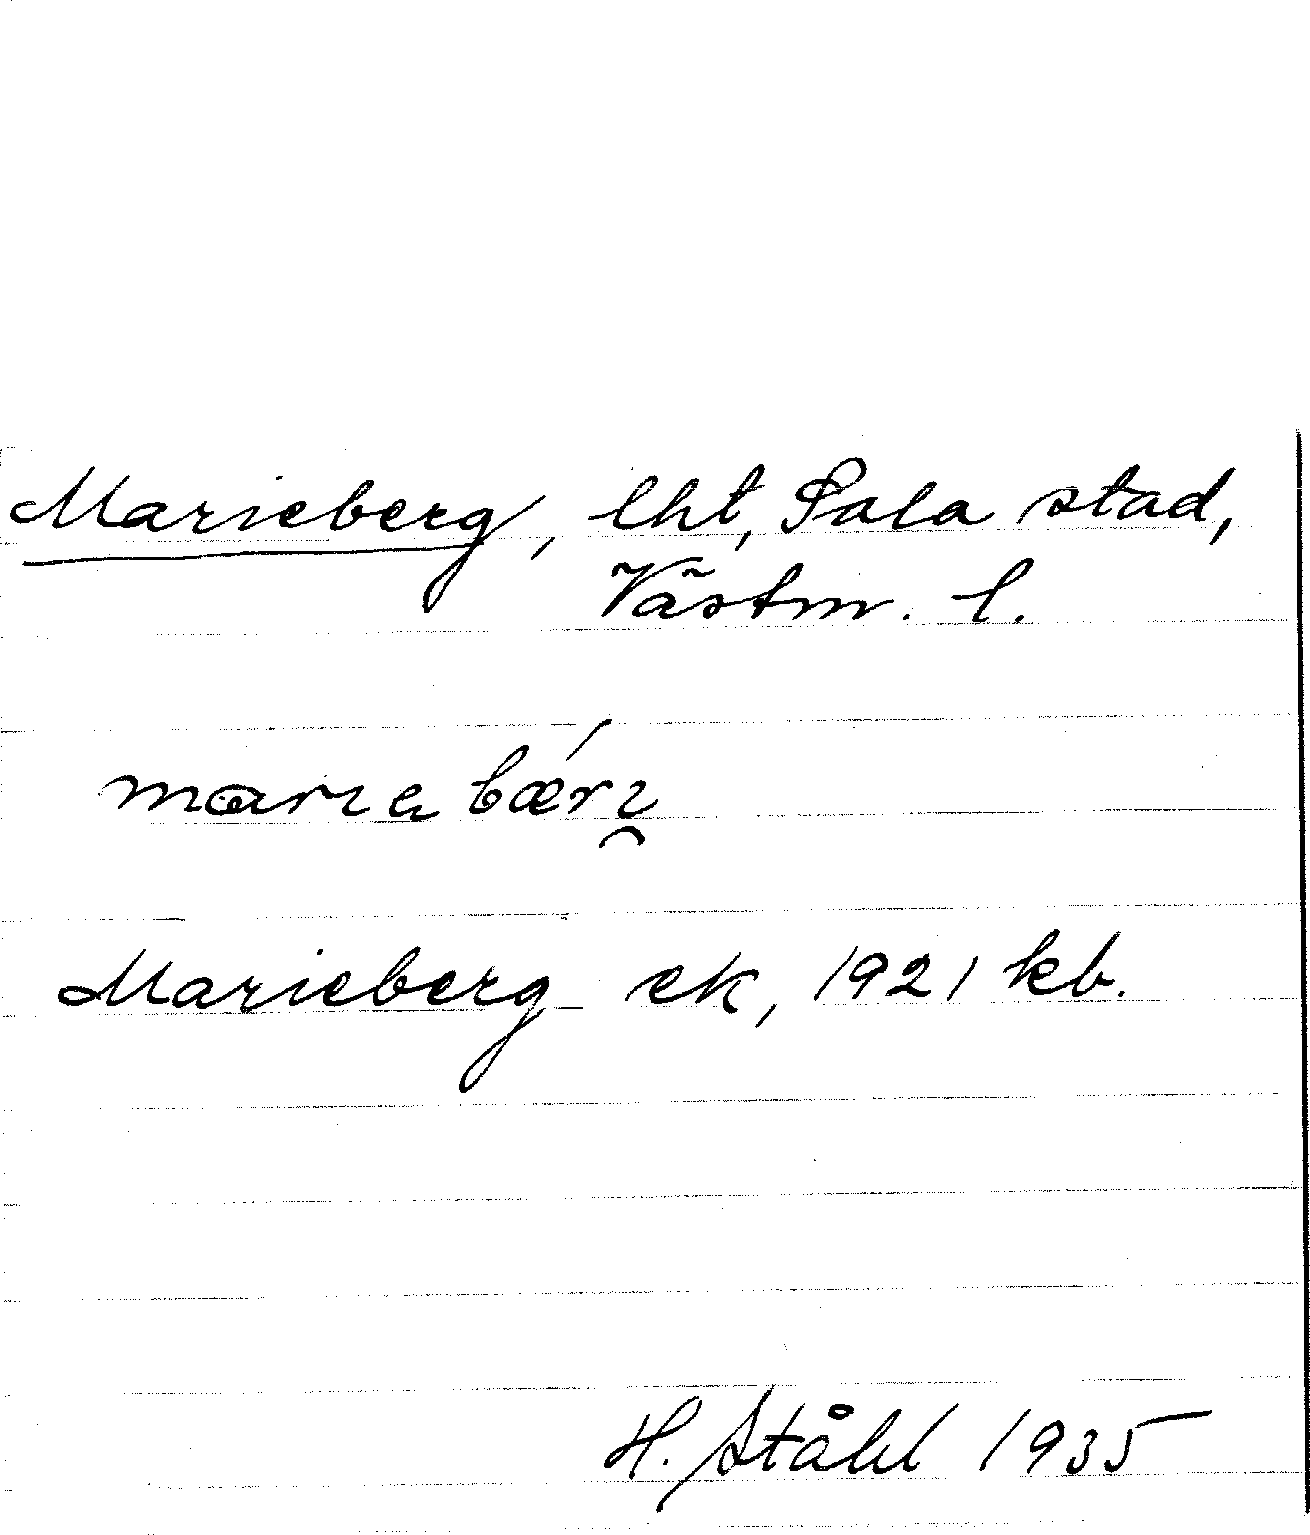 Marieberg, lht, Sala stad,
Västm. l.
Marieberg ek, 1921 kb.
H. Ståhl 1935